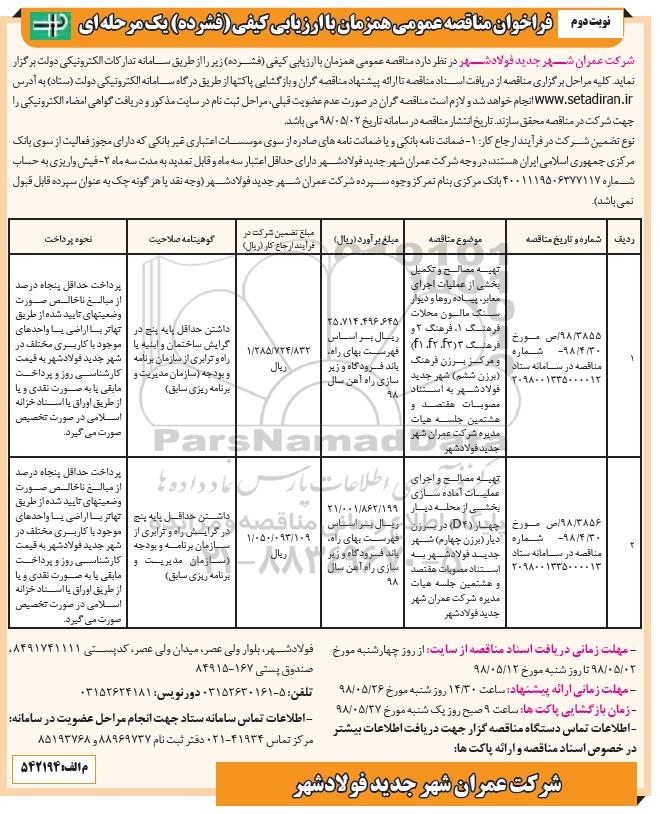 نوبت دوم
فراخوان مناقصه عمومی همزمان با ارزیابی کیفی (فشرده) یک مرحله ای
شرکت عمران شهر جدید فولادشهر در نظر دارد مناقصه عمومی همزمان با ارزیابی کیفی (فشرده) زیر را از طریق سامانه تدارکات الکترونیکی دولت برگزار
نماید. کلیه مراحل برگزاری مناقصه از دریافت اسناد مناقصه تا ارائه پیشنهاد مناقصه گران و بازگشایی پاکتها از طریق درگاه سامانه الکترونیکی دولت (ستاد) به آدرس
www.setadiran.ir انجام خواهد شد و لازم است مناقصه گران در صورت عدم عضویت قبلی، مراحل ثبت نام در سایت مذکور و دریافت گواهی امضاء الکترونیکی را
جهت شرکت در مناقصه محقق سازند. تاریخ انتشار مناقصه در سامانه تاریخ ۹۸/۰۵/۰۲ می باشد.
نوع تضمین شرکت در فرآیند ارجاع کار: ۱- ضمانت نامه بانکی و یا ضمانت نامه های صادره از سوی موسسات اعتباری غیر بانکی که دارای مجوز فعالیت از سوی بانک
مرکزی جمهوری اسلامی ایران هستند، در وجه شرکت عمران شهر جدید فولادشهر دارای حداقل اعتبار سه ماه و قابل تمدید به مدت سه ماه ۲- فیش واریزی به حساب
شماره ۴۰۰۱۱۱۹۵۰۶۳۷۷۱۱۷ بانک مرکزی بنام تمرکز وجوه سپرده شرکت عمران شهر جدید فولادشهر (وجه نقد یا هر گونه چک به عنوان سپرده قابل قبول
نمی باشد).
ردیف
شماره و تاریخ مناقصه
موضوع مناقصه
مبلغ برآورد (ریال)
مبلغ تضمین شرکت در
فرآیند ارجاع کار (ریال)
گوهینامه صلاحیت
نحوه پرداخت
۱
۹۸/۳۸۵۵/ص مورخ
۹۸/۴/۳۰- شماره
مناقصه در سامانه ستاد
۲۰۹۸۰۰۱۳۳۵۰۰۰۰۱۲
تهیه مصالح و تکمیل
بخشی از عملیات اجرای
معابر، پیاده روها و دیوار
سنگ مالون محلات
فرهنگ ۱، فرهنگ ۲ و
فرهنگ ۳ (f۱، f۲، f۳)
و مرکز برزن فرهنگ
(برزن ششم) شهر جدید
فولادشهر به استناد
مصوبات هفتصد و
هشتمین جلسه هیات
مدیره شرکت عمران شهر
جدید فولادشهر
۲۵،۷۱۴،۴۹۶،۶۴۵
ریال بر اساس
فهرست بهای راه،
باند فرودگاه و زیر
سازی راه آهن سال
۹۸
۱/۲۸۵/۷۲۴/۸۳۲
ریال
داشتن حداقل پایه پنج در
گرایش ساختمان و ابنیه یا
راه و ترابری از سازمان برنامه
و بودجه (سازمان مدیریت و
برنامه ریزی سابق)
پرداخت حداقل پنجاه درصد
از مبالغ ناخالص صورت
وضعیتهای تایید شده از طریق
تهاتر با اراضی یا واحدهای
موجود با کاربری مختلف در
شهر جدید فولادشهر به قیمت
کارشناسی روز و پرداخت
مابقی یا به صورت نقدی و یا
از طریق اوراق یا اسناد خزانه
اسلامی در صورت تخصیص
صورت می گیرد.
۲
۹۸/۳۸۵۶/ص مورخ
۹۸/۴/۳۰- شماره
مناقصه در سامانه ستاد
۲۰۹۸۰۰۱۳۳۵۰۰۰۰۱۳
تهیه مصالح و اجرای
عملیات آماده سازی
بخشی از محله دیار
چهار (D۴) در برزن
دیار (برزن چهارم) شهر
جدید فولادشهر به
استناد مصوبات هفتصد
و هشتمین جلسه هیات
مدیره شرکت عمران شهر
جدید فولادشهر
۲۱/۰۰۱/۸۶۲/۱۹۹
ریال بر اساس
فهرست بهای راه،
باند فرودگاه و زیر
سازی راه آهن سال
۹۸
۱/۰۵۰/۰۹۳/۱۰۹
ریال
داشتن حداقل پایه پنج
در گرایش راه و ترابری از
سازمان برنامه و بودجه
(سازمان مدیریت و
برنامه ریزی سابق)
پرداخت حداقل پنجاه درصد
از مبالغ ناخالص صورت
وضعیتهای تایید شده از طریق
تهاتر با اراضی یا واحدهای
موجود با کاربری مختلف در
شهر جدید فولادشهر به قیمت
کارشناسی روز و پرداخت
مابقی یا به صورت نقدی و یا
از طریق اوراق یا اسناد خزانه
اسلامی در صورت تخصیص
صورت می گیرد.
ParsNamadData
- مهلت زمانی دریافت اسناد مناقصه از سایت: از روز چهارشنبه مورخ
۹۸/۰۵/۰۲ تا روز شنبه مورخ ۹۸/۰۵/۱۲
- مهلت زمانی ارائه پیشنهاد: ساعت ۱۴/۳۰ روز شنبه مورخ ۹۸/۰۵/۲۶
- زمان بازگشایی پاکت ها: ساعت ۹ صبح روز یک شنبه مورخ ۹۸/۰۵/۲۷
- اطلاعات تماس دستگاه مناقصه گزار جهت دریافت اطلاعات بیشتر
در خصوص اسناد مناقصه و ارائه پاکت ها:
فولادشهر، بلوار ولی عصر، میدان ولی عصر، کدپستی ۸۴۹۱۷۴۱۱۱۱،
صندوق پستی ۱۶۷-۸۴۹۱۵
تلفن: ۵-۰۳۱۵۲۶۳۰۱۶۱ دورنویس: ۰۳۱۵۲۶۲۴۱۸۱
- اطلاعات تماس سامانه ستاد جهت انجام مراحل عضویت در سامانه:
مرکز تماس ۴۱۹۳۴-۰۲۱ دفتر ثبت نام ۸۸۹۶۹۷۳۷ و ۸۵۱۹۳۷۶۸
م الف: ۵۴۲۱۹۴
شرکت عمران شهر جدید فولادشهر